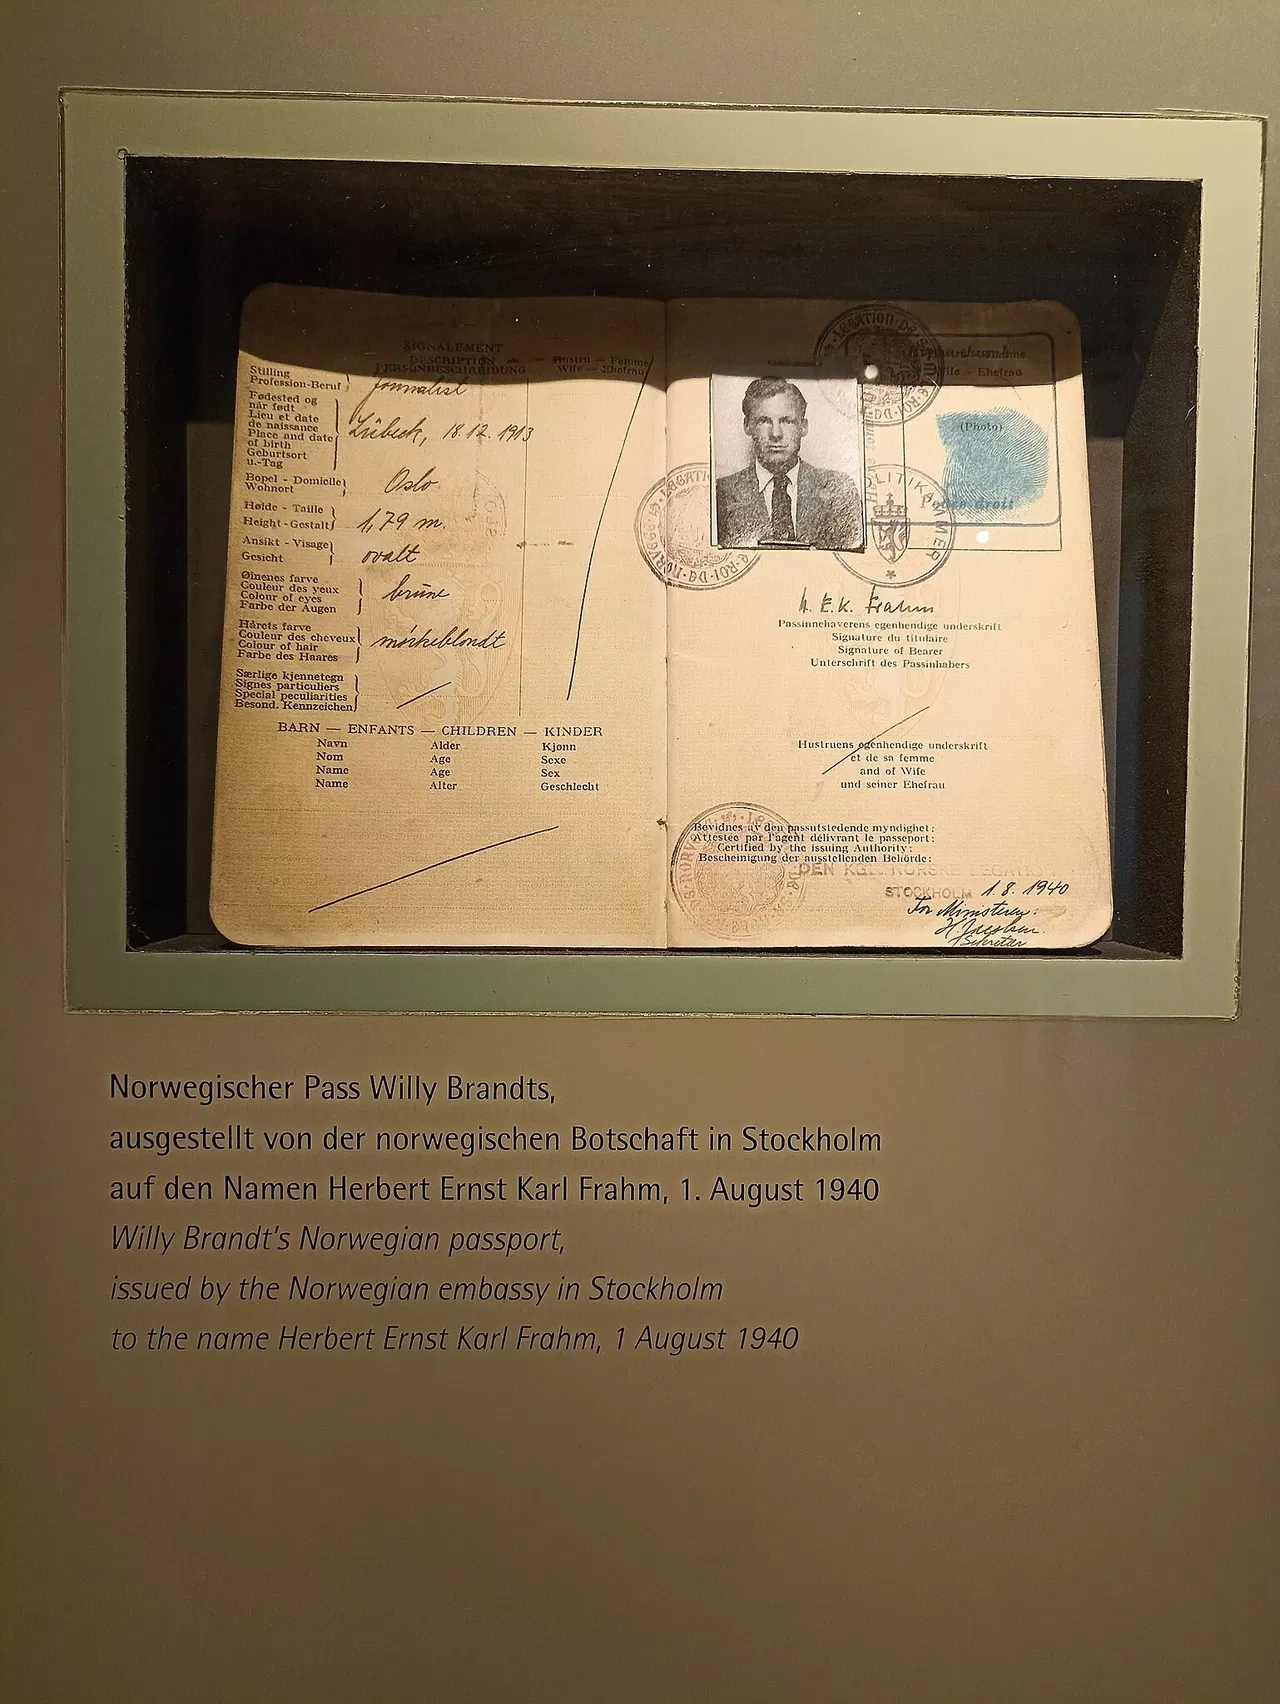 SIGNALEMENT
DESCRIPTION
PERSONBESCHREIBUNG
Hustru — Femme
Wife — Ehefrau
Stilling
Profession-Beruf
journalist
Fødested og
når født
Lieu et date
de naissance
Place and date
of birth
Geburtsort
u.-Tag
Lübeck, 18.12.1913
Bopel - Domicile
Wohnort
Oslo
Høide - Taille
Height-Gestalt
1,79 m.
Ansikt - Visage
Gesicht
ovalt
Øinenes farve
Couleur des yeux
Colour of eyes
Farbe der Augen
brune
Hårets farve
Couleur des cheveux
Colour of hair
Farbe des Haares
mörkeblondt
Særlige kjennetegn
Signes particuliers
Special peculiarities
Besond. Kennzeichen
BARN — ENFANTS — CHILDREN — KINDER
Navn Alder Kjønn
Nom Age Sexe
Name Age Sex
Name Alter Geschlecht
Wife - Ehefrau
(Photo)
H. E. K. Frahm
Passinnehaverens egenhendige underskrift
Signature du titulaire
Signature of Bearer
Unterschrift des Passinhabers
Hustruens egenhendige underskrift
et de sa femme
and of Wife
und seiner Ehefrau
Bevidnes av den passutstedende myndighet:
Attestée par l'agent délivrant le passeport:
Certified by the issuing Authority:
Bescheinigung der ausstellenden Behörde:
DEN KGL. NORSKE LEGATION
STOCKHOLM 1.8.1940
For Ministeren:
Sekretær
Norwegischer Pass Willy Brandts,
ausgestellt von der norwegischen Botschaft in Stockholm
auf den Namen Herbert Ernst Karl Frahm, 1. August 1940
Willy Brandt's Norwegian passport,
issued by the Norwegian embassy in Stockholm
to the name Herbert Ernst Karl Frahm, 1 August 1940